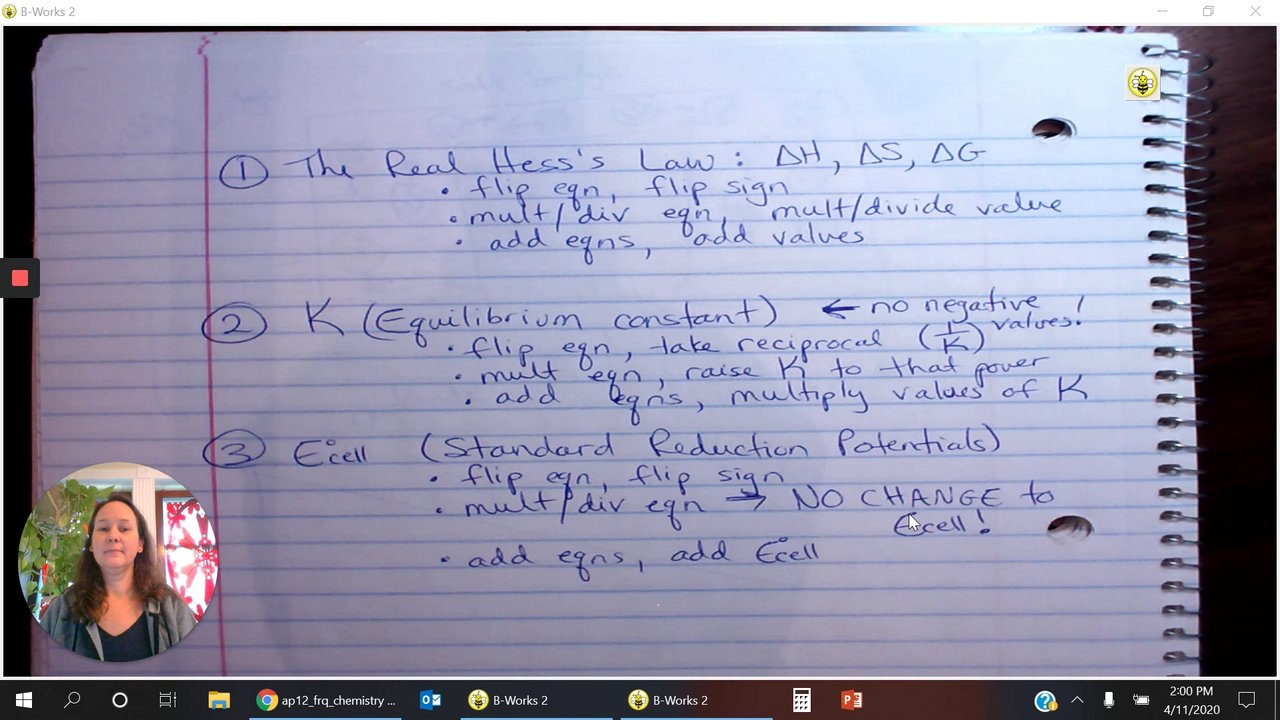 B-Works 2
① The Real Hess's Law : ΔH, ΔS, ΔG
• flip eqn, flip sign
• mult/div eqn, mult/divide value
• add eqns, add values
② K (Equilibrium constant) ← no negative values!
• flip eqn, take reciprocal (1/K)
• mult eqn, raise K to that power
• add eqns, multiply values of K
③ E°cell (Standard Reduction Potentials)
• flip eqn, flip sign
• mult/div eqn → NO CHANGE to
E°cell!
• add eqns, add E°cell
ap12_frq_chemistry ...
B-Works 2
B-Works 2
2:00 PM
4/11/2020